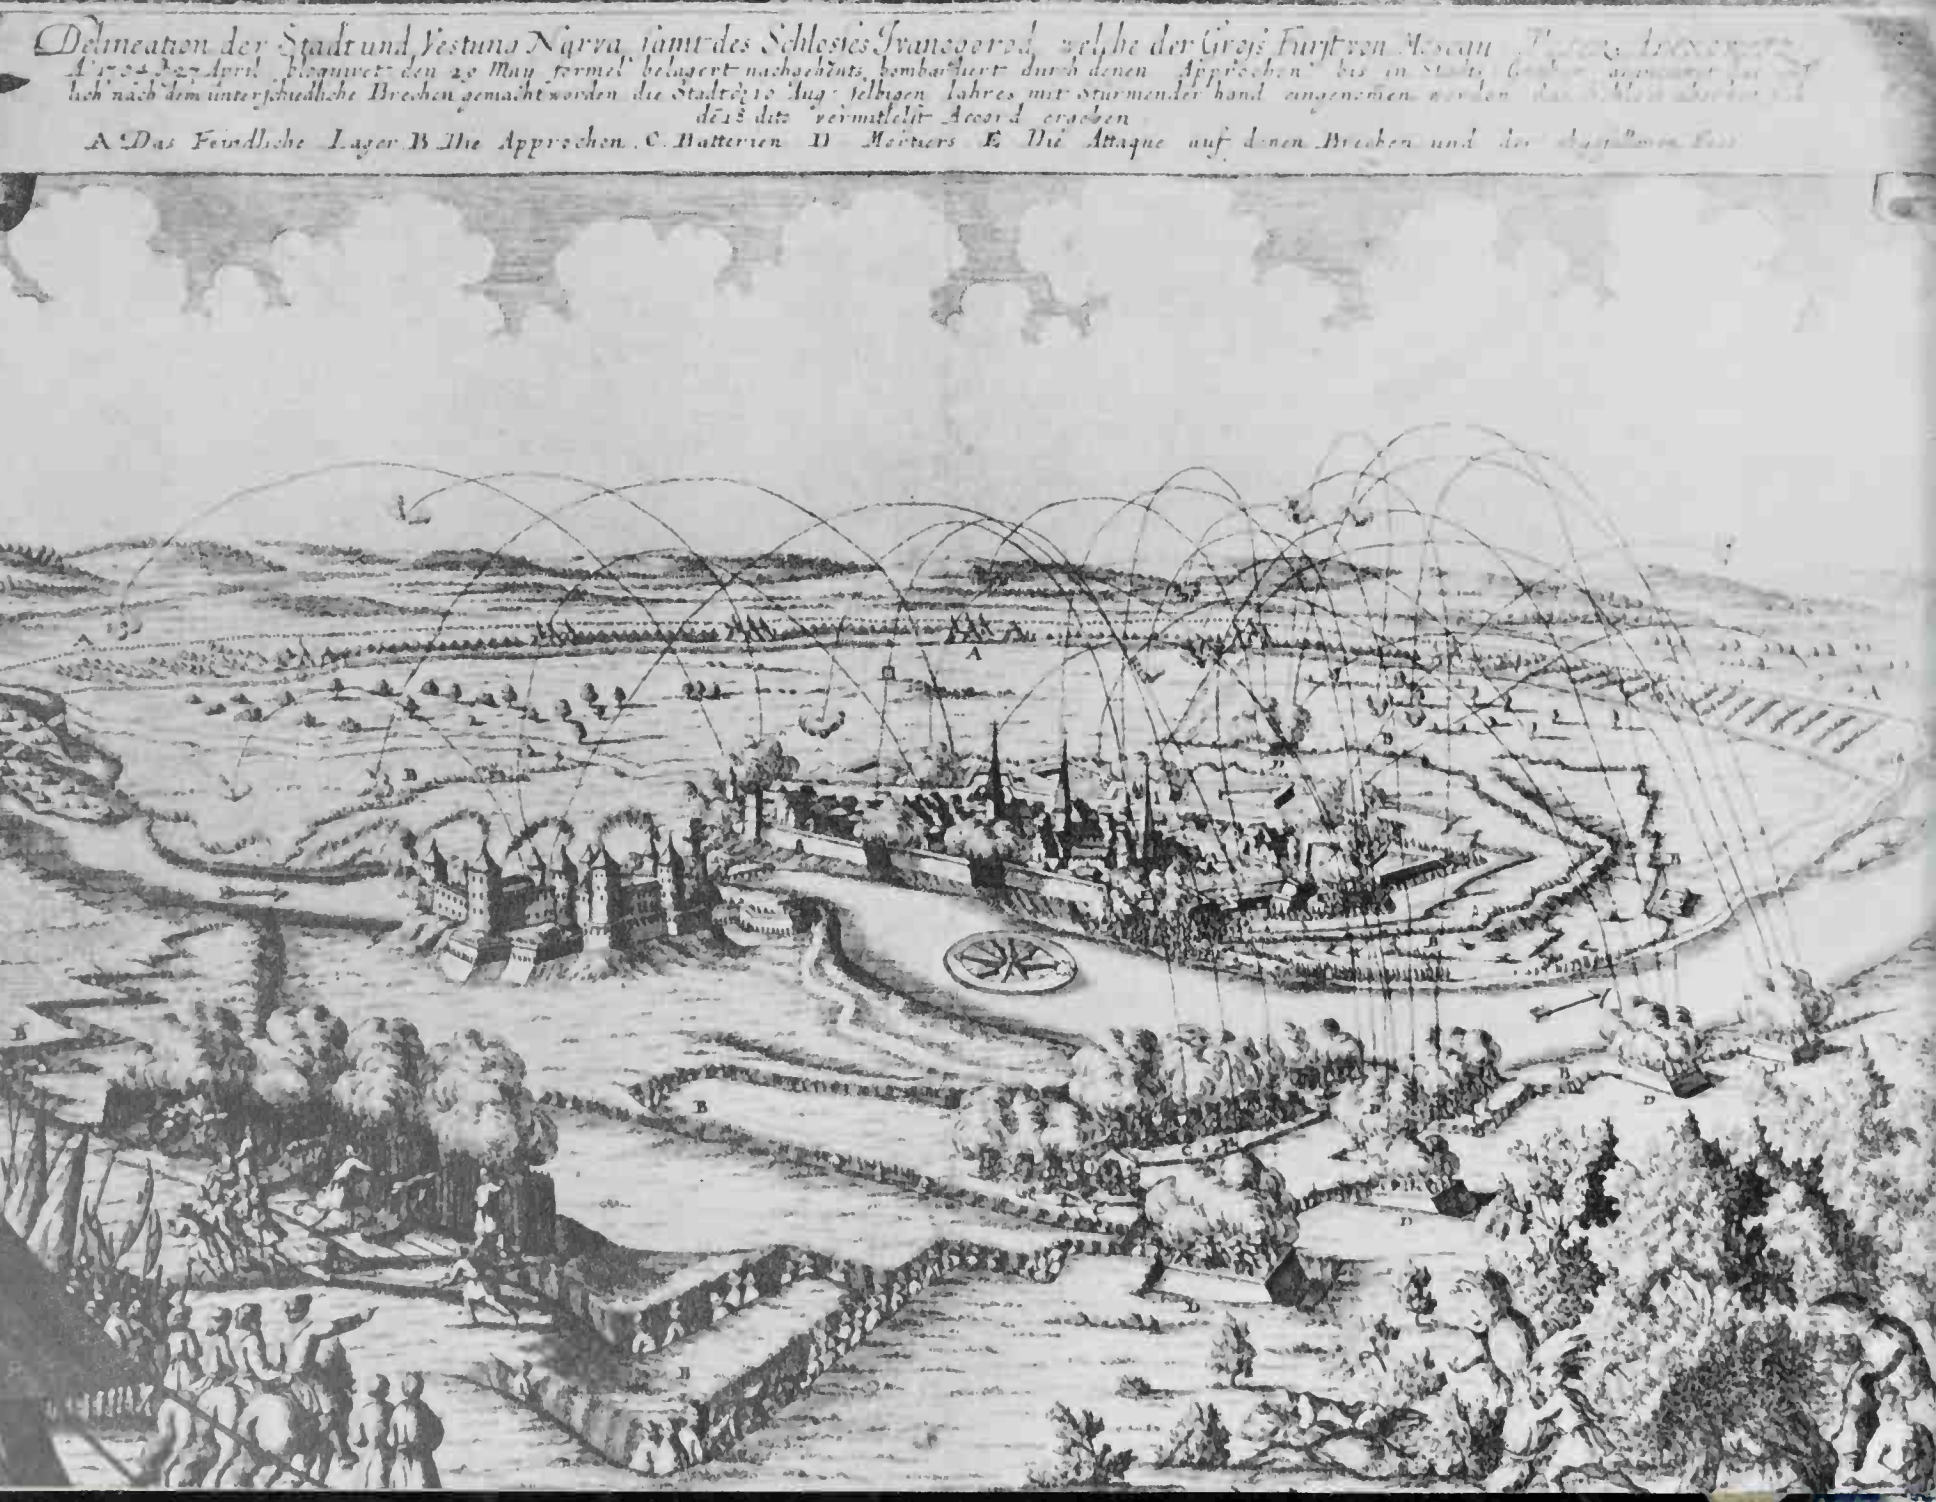 Delineation der Stadt und Vestung Narva samt des Schlosses Ivanogorod, welche der Gross Furst von Moscau
Aº 1704 d 27 April bloquiret den 29 May formel belagert nachgehents bombardiert durch denen Approchen bis in
lich nach dem unterschiedliche Brechen gemacht worden die Stadt d 10 Aug: selbigen Jahres mit sturmender hand eingenom̄en worden das Schloss
dē 18 dito vermittelst Accord ergeben
A Das Feindliche Lager B Die Approchen. C. Batterien D Mortiers E Die Attaque auf denen Brechen und der
A
A
B
B
B
B
B
B
B
B
C
D
D
D
D